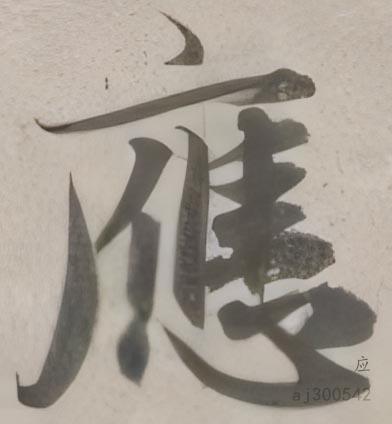 應
应
aj300542